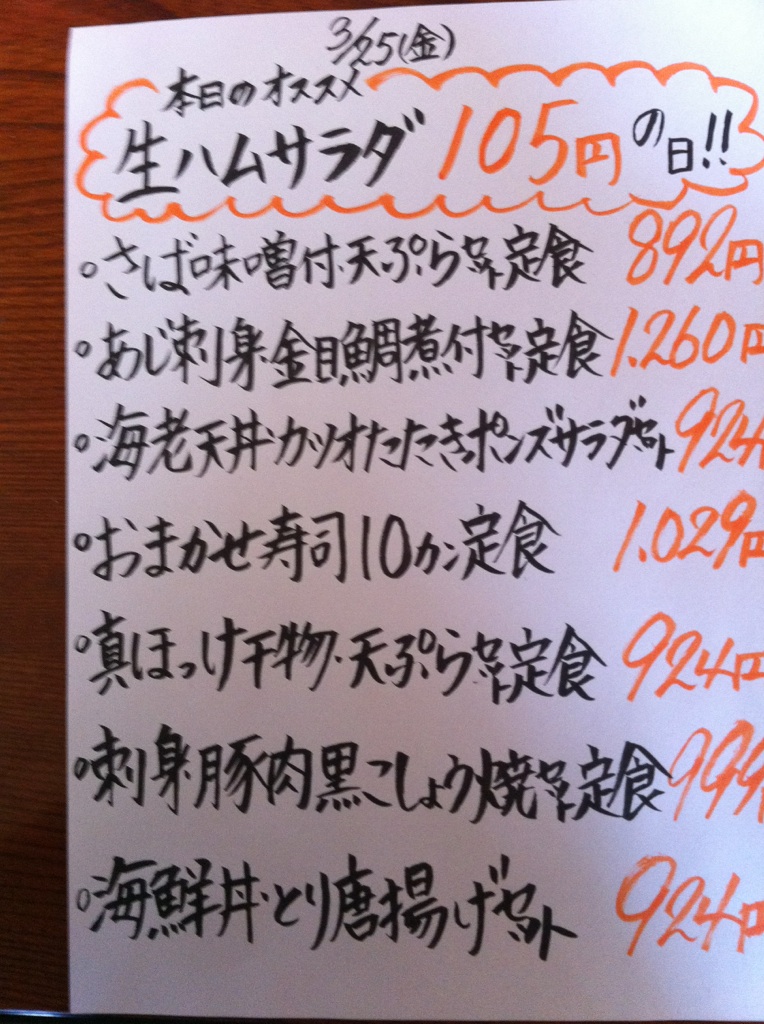 3/25(金)
本日のオススメ
生ハムサラダ 105円の日!!
さば味噌付・天ぷらセット定食 892円
あじ刺身・金目鯛煮付セット定食 1.260円
海老天丼・カツオたたきポンズサラダセット 924
おまかせ寿司10カン定食 1.029円
真ほっけ干物・天ぷらセット定食 924円
刺身・豚肉黒こしょう焼セット定食 999
海鮮丼・とり唐揚げセット 924円